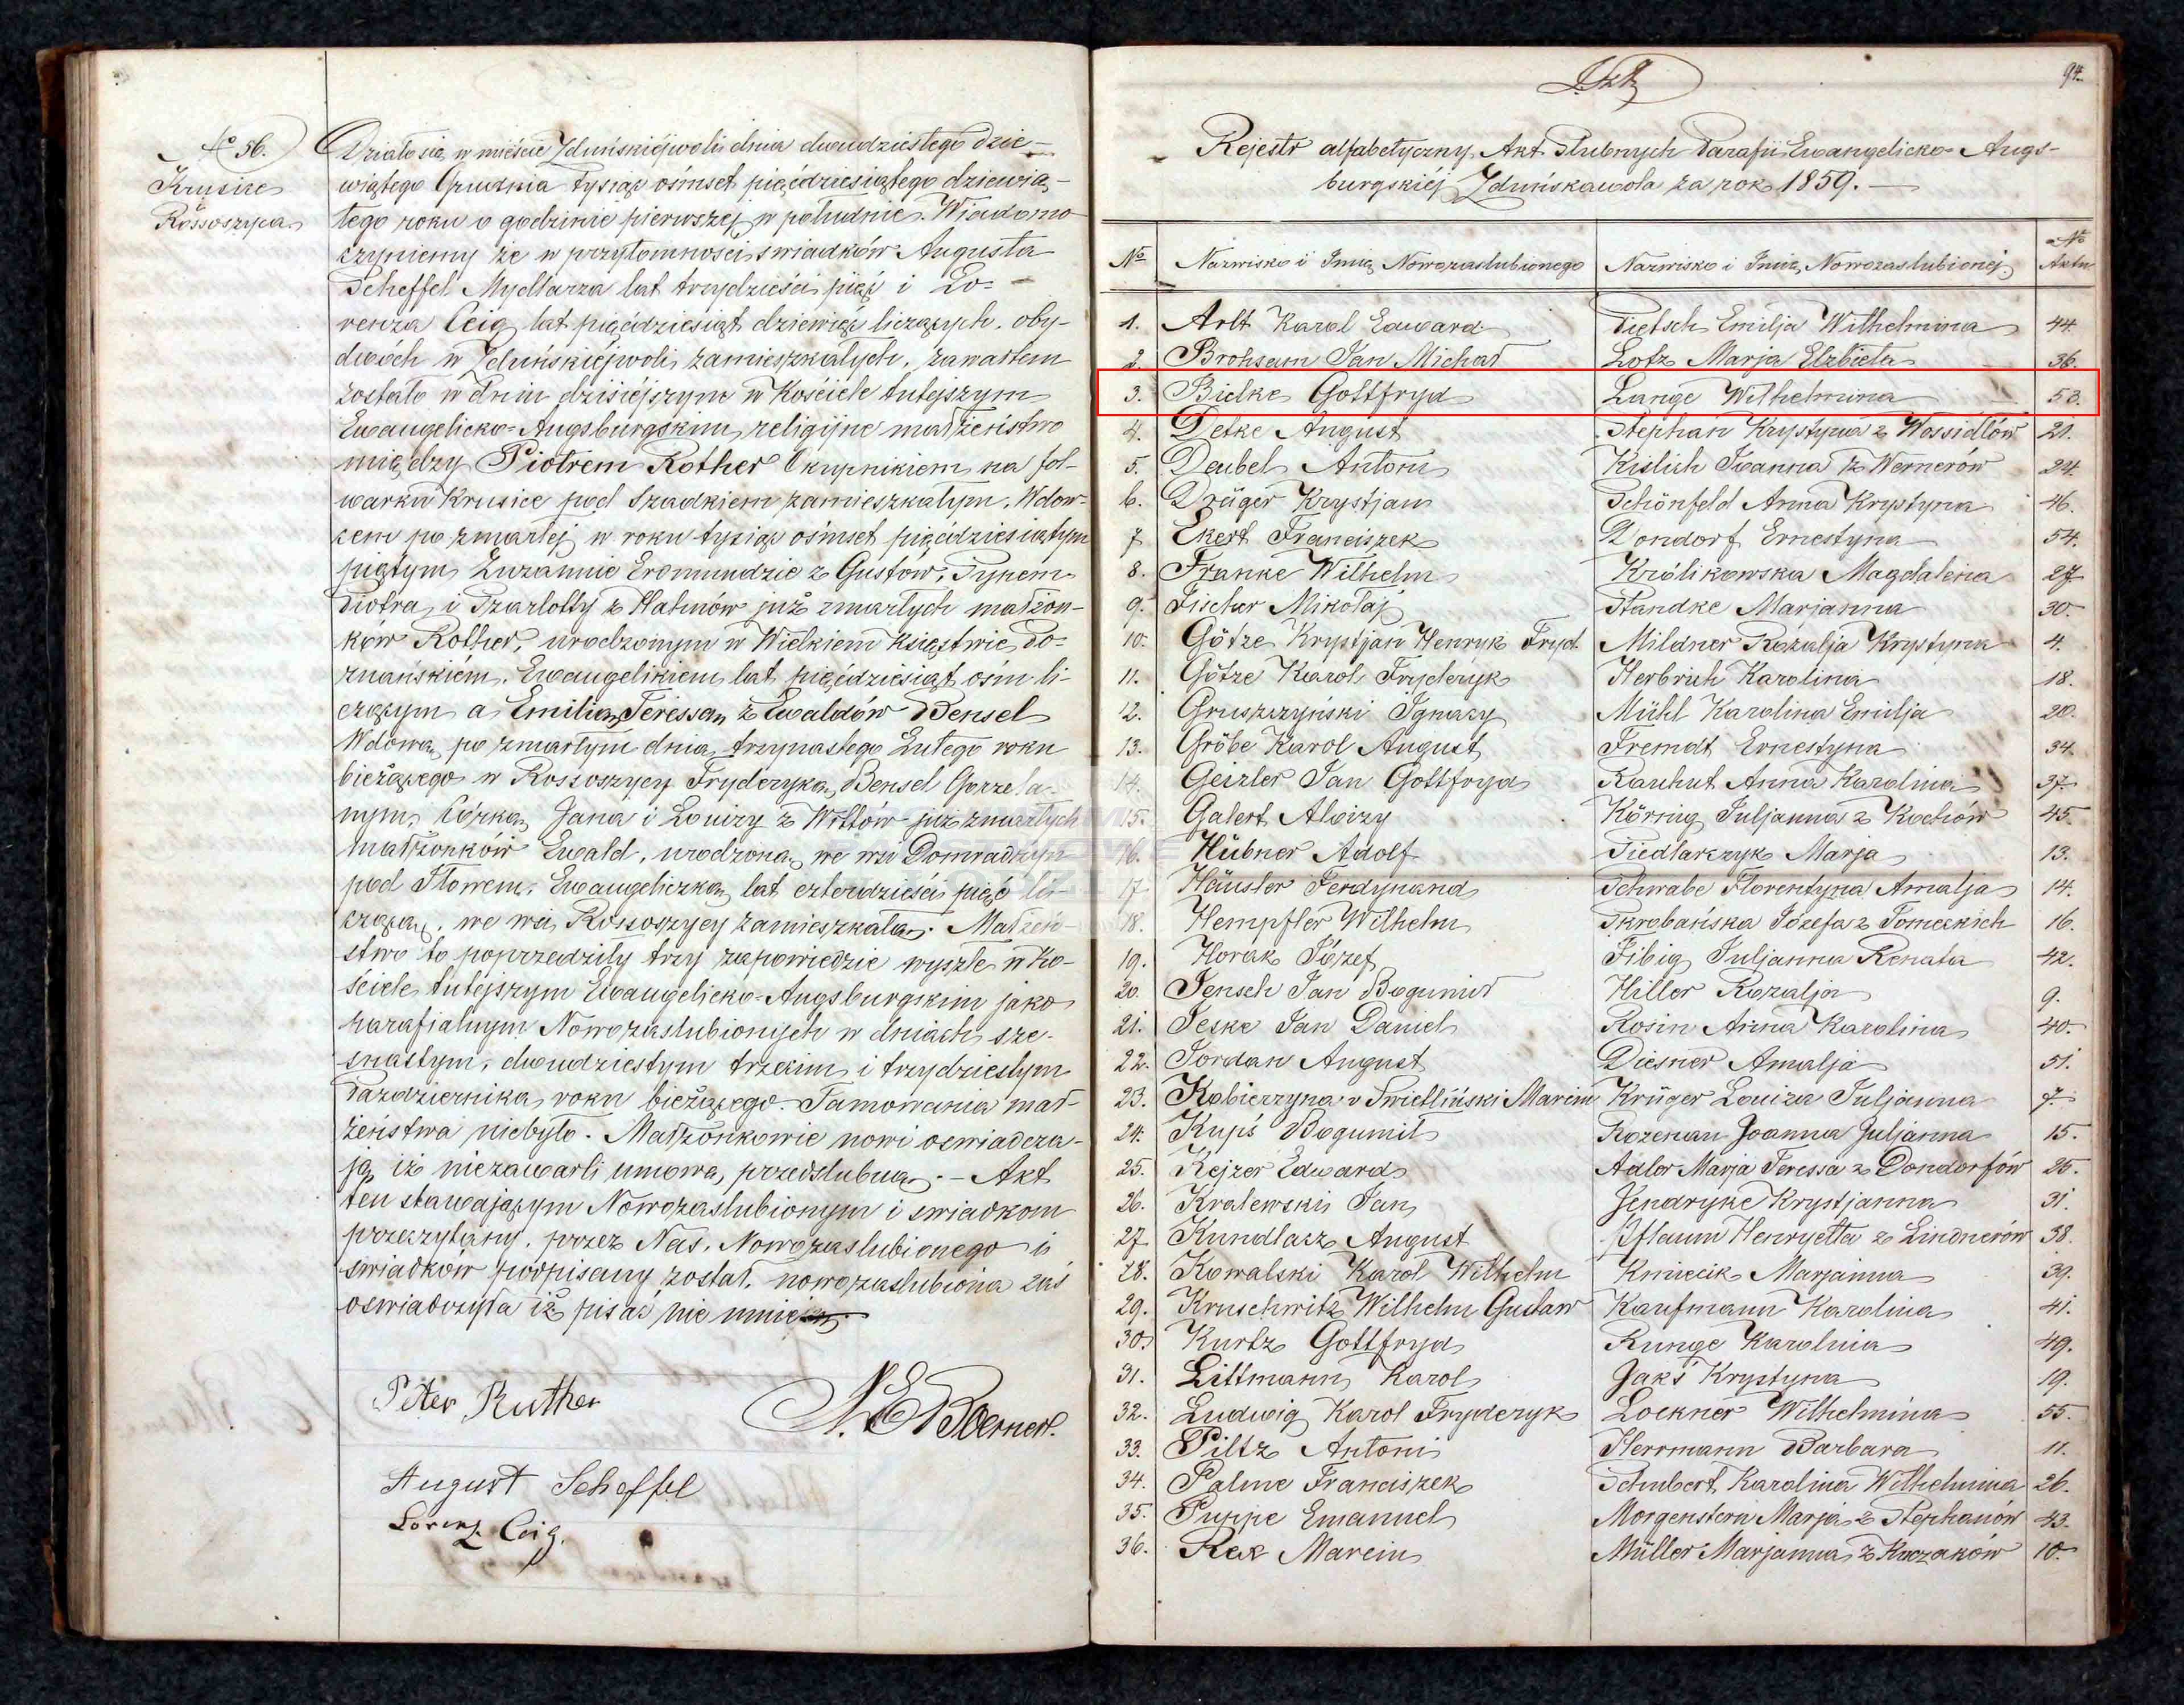 No 56.
Krusice
Rossoszyca
Działo się w mieście Zduńskiéjwoli dnia dwudziestego dzie-
wiątego Grudnia tysiąc ośmset pięćdziesiątego dziewią-
tego roku o godzinie pierwszej w południe. Wiadomo
czyniemy że w przytomności swiadków Augusta
Scheffel Mydlarza lat trzydzieści pięć i Lo-
renza Ceig lat pięćdziesiąt dziewięć liczących, oby-
dwóch w Zduńskiéjwoli zamieszkałych, zawartem
zostało w dniu dzisiéjszym w Kościele tutejszym
Ewangelicko-Augsburgskim religijne małżeństwo
między Piotrem Rother Okupnikiem na fol-
warku Krusice pod Szadkiem zamieszkałym, Wdow-
cem po zmarłej w roku tysiąc ośmset pięćdziesiątym
piątym Zuzannie Eromundzie z Gustów, Synem
Piotra i Szarlotty z Hahnów już zmarłych małżon-
ków Rother, urodzonym w Wielkiem Księstwie Po-
znańskiém, Ewangelikiem lat pięćdziesiąt ośm li-
czącym a Emilią Teressą z Ewaldów Bensel
Wdową po zmarłym dnia trzynastego Lutego roku
bieżącego w Rossoszycy Fryderyku Bensel Gorzela-
nym, Córką Jana i Louizy z Wittów już zmarłych
małżonków Ewald, urodzoną we wsi Domradzyn
pod Głownem, Ewangeliczką lat czterdzieści pięć li-
czącą, we wsi Rossoszycy zamieszkałą. Małżeń-
stwo to poprzedziły trzy zapowiedzie wyszłe w Ko-
ściele tutéjszym Ewangelicko-Augsburgskim jako
parafialnym Nowozaslubionych w dniach sze-
snastym, dwudziestym trzecim i trzydziestym
Pazdziernika roku bieżącego. Tamowania mał-
żeństwa niebyło. Małżonkowie nowi oswiadcza-
ją iż niezawarli umowę przedslubną. - Akt
ten stawającym Nowozaslubionym i swiadkom
przeczytany, przez Nas, Nowozaslubionego i
swiadków podpisany został, nowozaslubiona zaś
oswiadczyła iż pisać nie umie
Peter Ruther
August Scheffel
Lorenz Ceig.
94.
Rejestr alfabetyczny Akt Slubnych Parafii Ewangelicko-Augs-
burgskiéj Zduńskawola za rok 1859.
No Nazwisko i Imię Nowozaslubionego Nazwisko i Imię Nowozaslubionéj No Aktu
1. Arlt Karol Edward Tietsch Emilja Wilhelmina 44.
2. Brohsam Jan Michał Lotz Marja Elzbieta 36.
3. Bielke Gottfryd Lange Wilhelmina 53.
4. Detke August Stephan Krystyna z Wossidłów 21.
5. Deubel Antoni Kislich Joanna z Wernerów 24.
6. Dräger Krystjan Schönfeld Anna Krystyna 46.
7. Ekert Franciszek Dondorf Ernestyna 54.
8. Franke Wilhelm Królikowska Magdalena 27.
9. Fischer Mikołaj Standke Marjanna 30.
10. Götze Krystjan Henryk Fryd. Mildner Rozalja Krystyna 4.
11. Götze Karol Fryderyk Herbrich Karolina 18.
12. Gruszczyński Ignacy Mühl Karolina Emilja 20.
13. Gröbe Karol August Fremdt Ernestyna 34.
14. Geizler Jan Gottfryd Rauhut Anna Karolina 37.
15. Galert Aloizy Körnig Juljanna z Kochów 45.
16. Hübner Adolf Siedlarczyk Marja 13.
17. Häusler Ferdynand Schwabe Florentyna Amalja 14.
18. Hempfler Wilhelm Skrobańska Józefa z Tomeckich 16.
19. Horak Józef Fibig Juljanna Renata 42.
20. Jensch Jan Bogumił Hiller Rozalja 9.
21. Jeske Jan Daniel Rosin Anna Karolina 40.
22. Jordan August Diesner Amalja 51.
23. Kobierzyna v Swietliński Marcin Krüger Louiza Juljanna 7.
24. Kupś Bogumił Rozenau Joanna Juljanna 15.
25. Kejzer Edward Adler Marja Teressa z Dondorfów 25.
26. Kralewski Jan Jendryke Krystjanna 31.
27. Kundlacz August Pflaum Henryetta z Lindnerów 38.
28. Kowalski Karol Wilhelm Kmiecik Marjanna 39.
29. Kruschwitz Wilhelm Gustaw Kaufmann Karolina 41.
30. Kurtz Gottfryd Runge Karolina 49.
31. Littmann Karol Jakś Krystyna 19.
32. Ludwig Karol Fryderyk Lockner Wilhelmina 55.
33. Piltz Antoni Herrmann Barbara 11.
34. Palme Franciszek Schubert Karolina Wilhelmina 26.
35. Puppe Emanuel Morgenstern Marja z Stephanów 43.
36. Rex Marcin Müller Marjanna z Kuczaków 10.